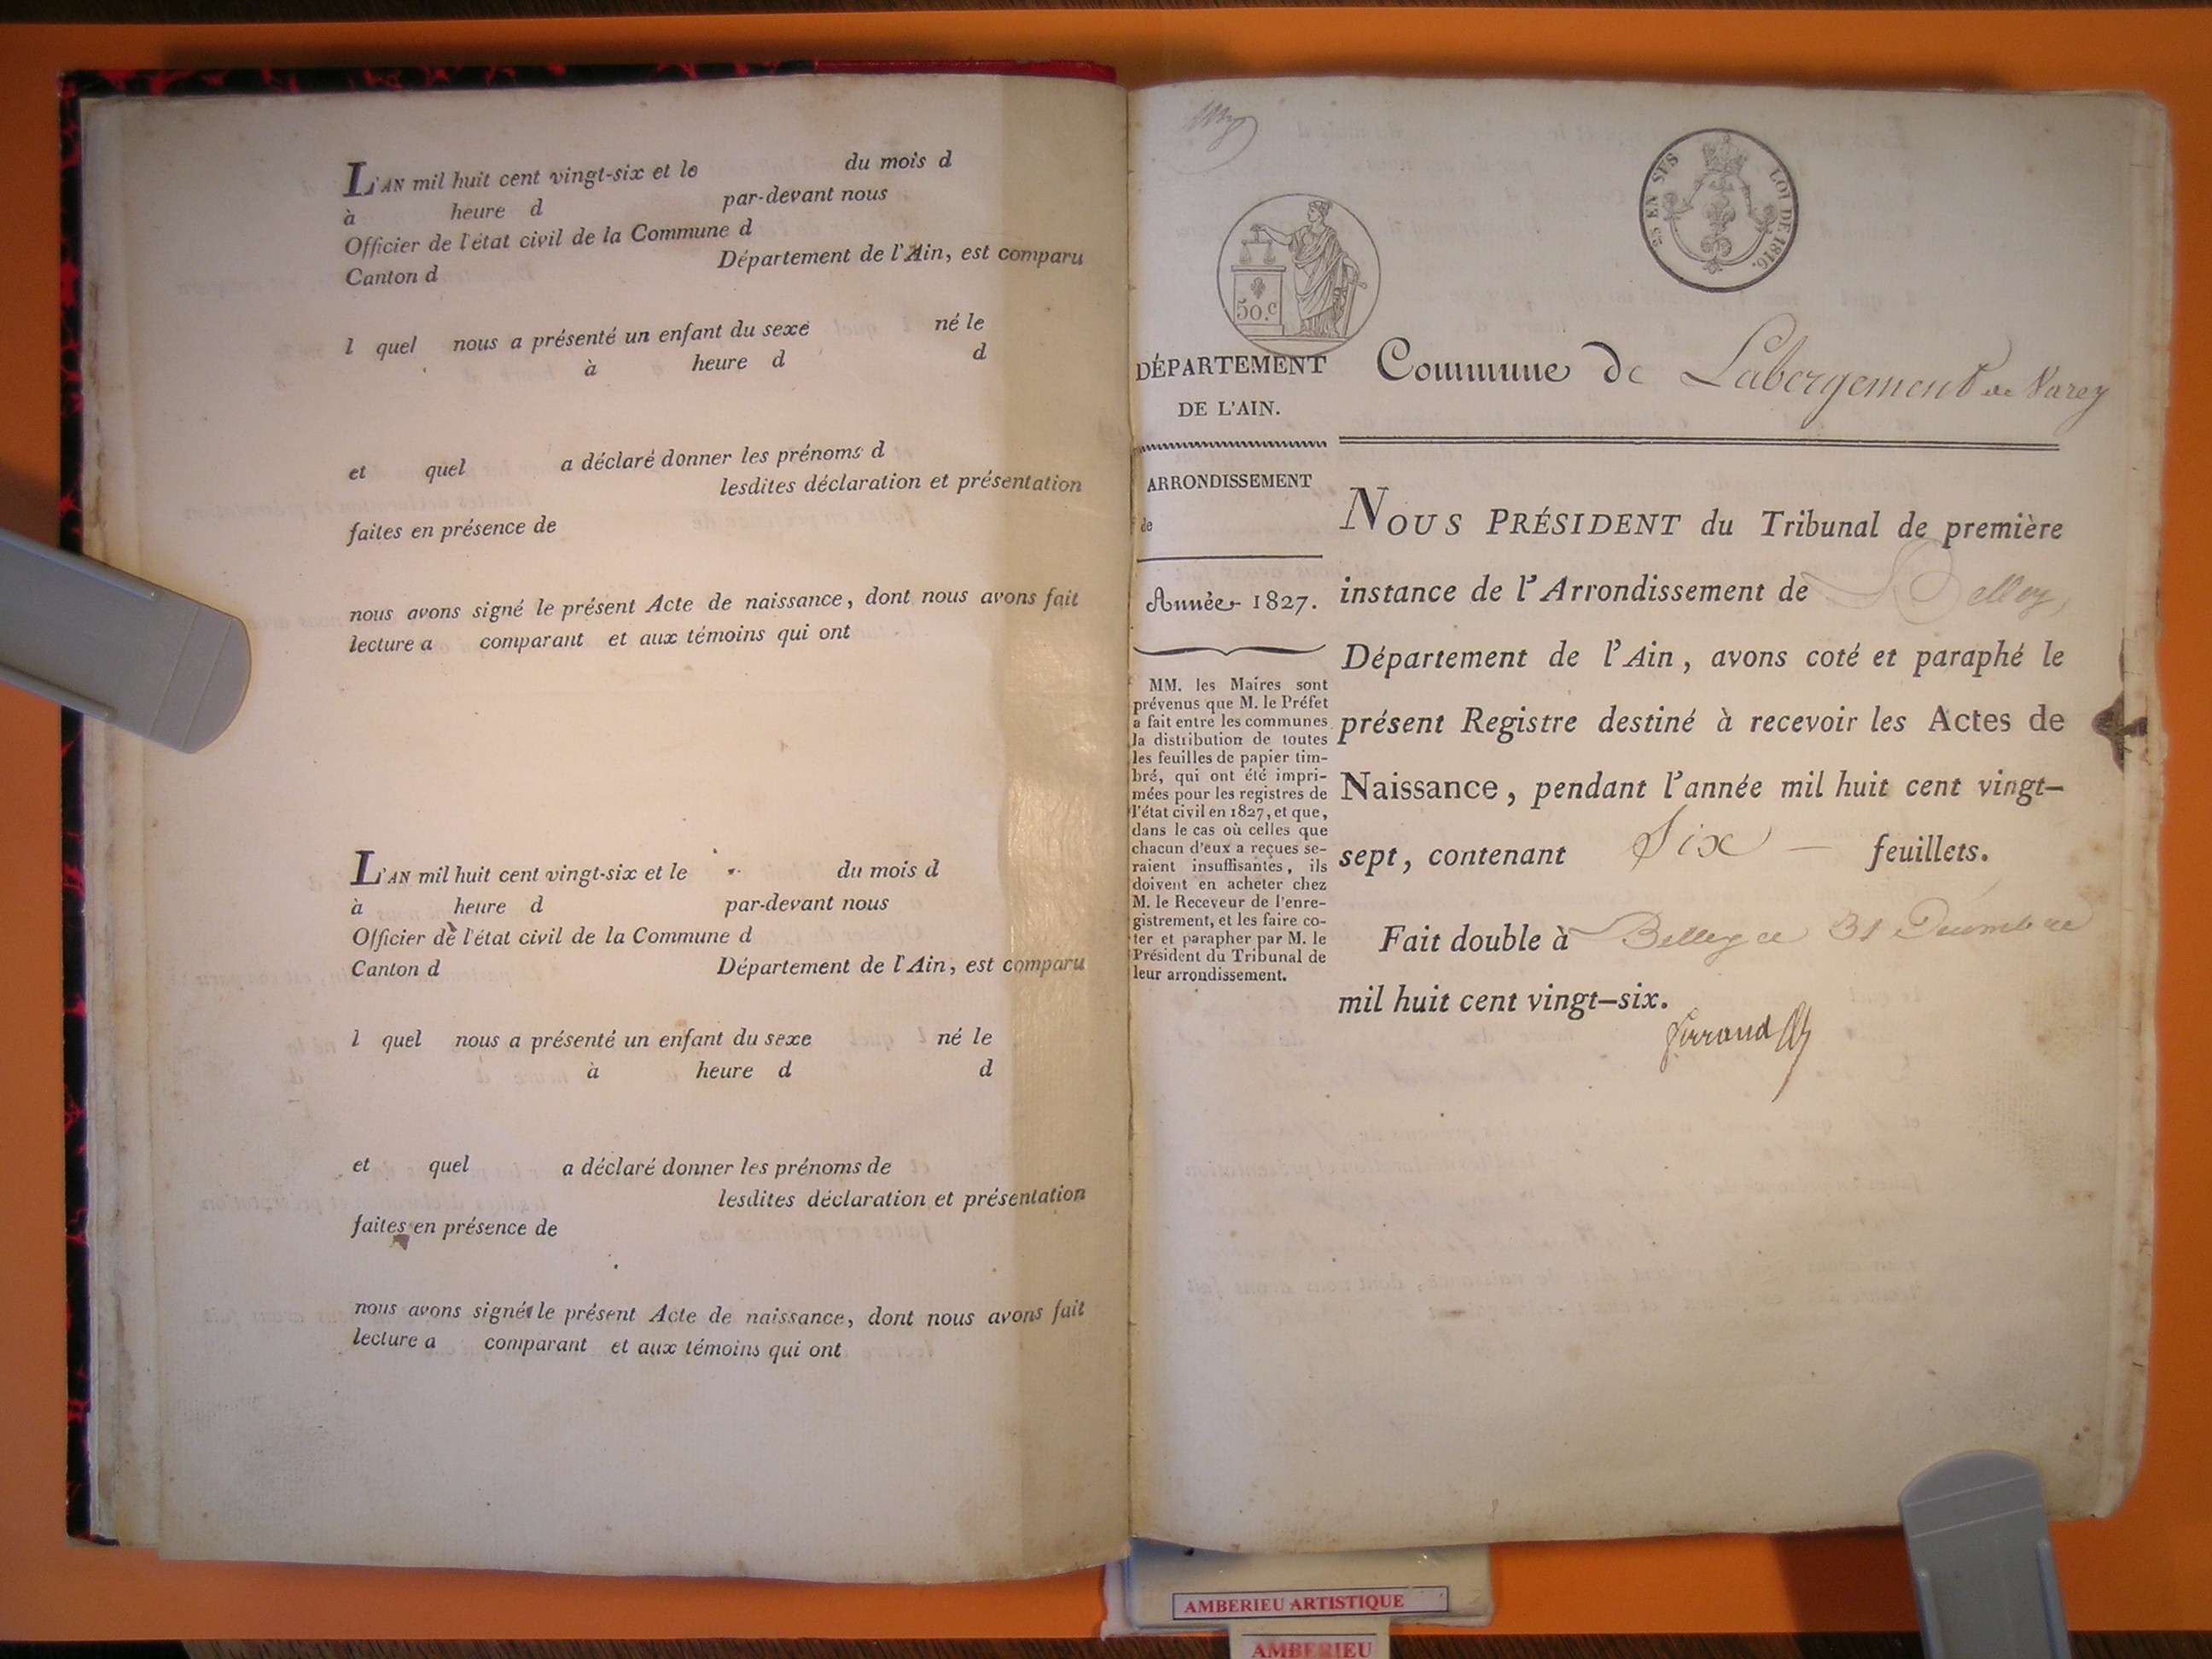 L'AN mil huit cent vingt-six et le du mois d
à heure d par-devant nous
Officier de l'état civil de la Commune d
Canton d Département de l'Ain, est comparu
l quel nous a présenté un enfant du sexe né le
à heure d d
et quel a déclaré donner les prénoms d
lesdites déclaration et présentation
faites en présence de
nous avons signé le présent Acte de naissance, dont nous avons fait
lecture a comparant et aux témoins qui ont
L'AN mil huit cent vingt-six et le du mois d
à heure d par-devant nous
Officier de l'état civil de la Commune d
Canton d Département de l'Ain, est comparu
l quel nous a présenté un enfant du sexe né le
à heure d d
et quel a déclaré donner les prénoms de
lesdites déclaration et présentation
faites en présence de
nous avons signé le présent Acte de naissance, dont nous avons fait
lecture a comparant et aux témoins qui ont
EN SUS LOI DE 1816.
50.c
DÉPARTEMENT
DE L'AIN.
ARRONDISSEMENT
de
Année 1827.
MM. les Maires sont
prévenus que M. le Préfet
a fait entre les communes
la distribution de toutes
les feuilles de papier tim-
bré, qui ont été impri-
mées pour les registres de
l'état civil en 1827, et que,
dans le cas où celles que
chacun d'eux a reçues se-
raient insuffisantes, ils
doivent en acheter chez
M. le Receveur de l'enre-
gistrement, et les faire co-
ter et parapher par M. le
Président du Tribunal de
leur arrondissement.
Commune de Labergement de Varey
NOUS PRÉSIDENT du Tribunal de première
instance de l'Arrondissement de Belley,
Département de l'Ain, avons coté et paraphé le
présent Registre destiné à recevoir les Actes de
Naissance, pendant l'année mil huit cent vingt-
sept, contenant Six — feuillets.
Fait double à Belley ce 31 Decembre
mil huit cent vingt-six.
AMBERIEU ARTISTIQUE
AMBERIEU